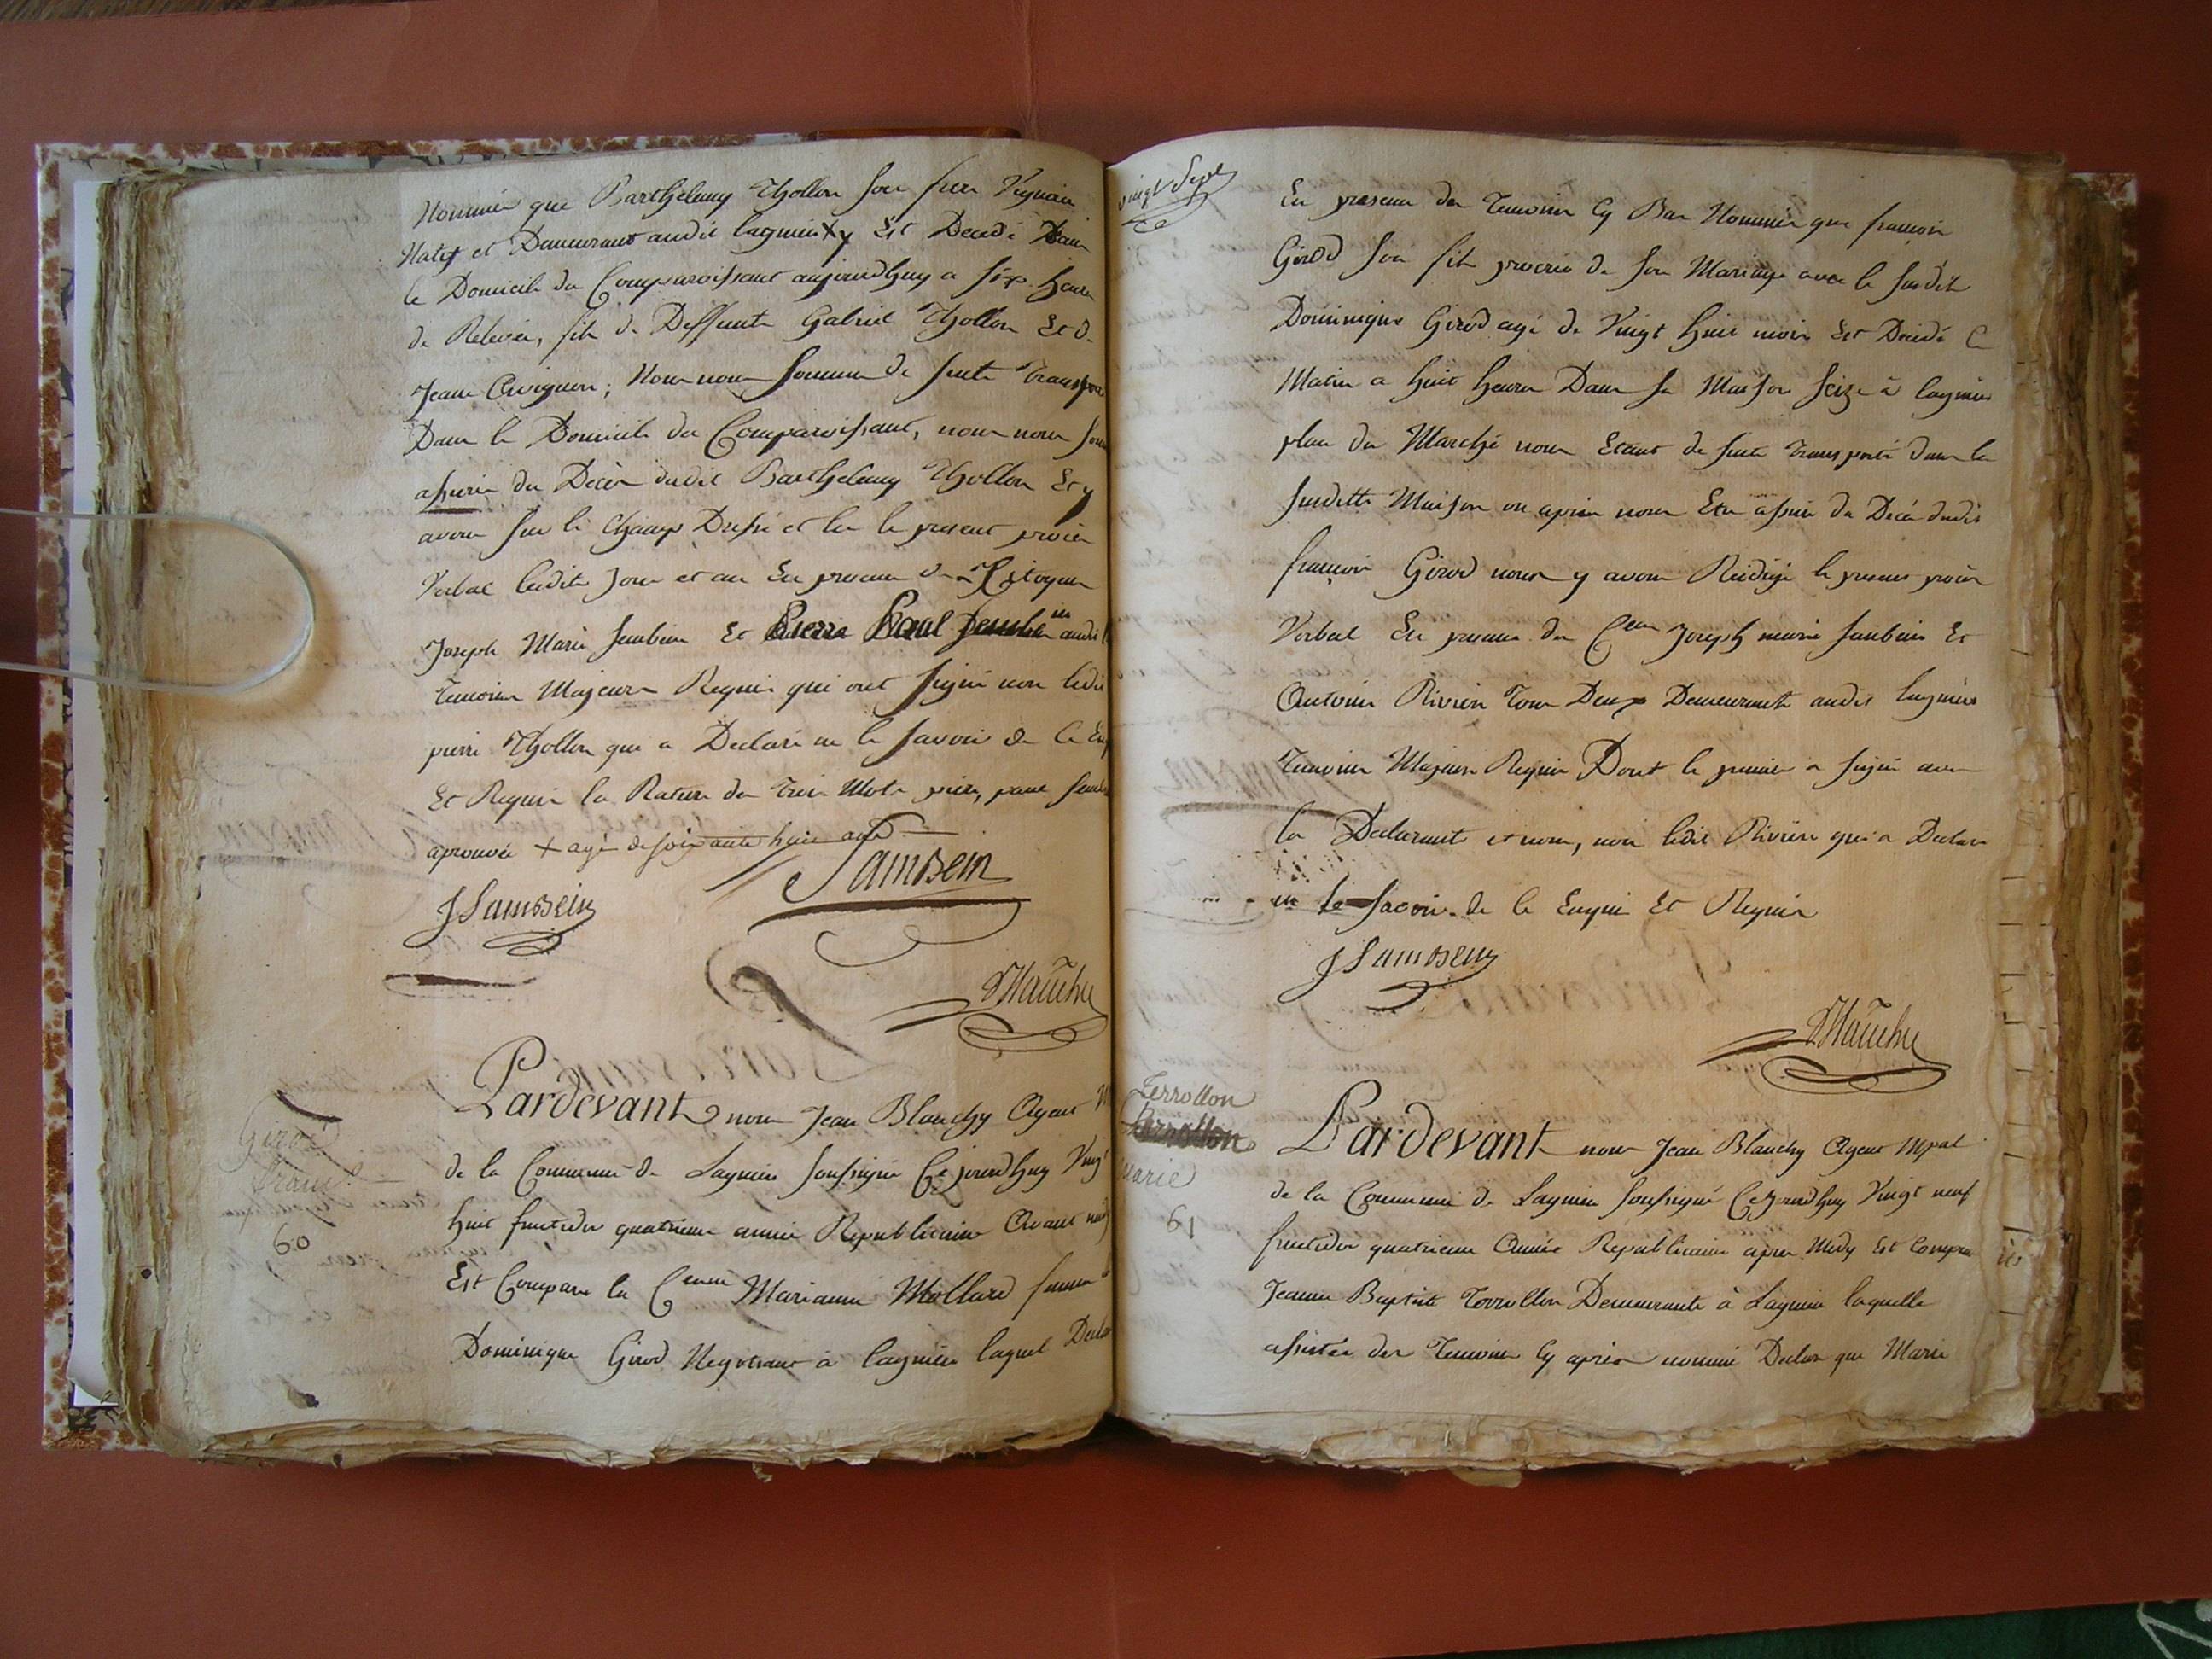 Nommés que Barthelemy Thollon son frere Vigneron
Natif et Demeurant audit lagnieu + y Est Decedé Dans
le Domicile du Comparoissant aujourdhuy a six heures
de Relevée, fils de Deffunts Gabriel Thollon Et de
Jeanne ; Nous nous sommes de suite Transporté
Dans le Domicile du Comparoissant, nous nous sommes
assurés du Décès dudit Barthelemy Thollon Et y
avons sur le Champ Dressé et lu le present procès
Verbal ledit Jour et an En presence des Citoyens
Joseph Marie Jambein Et audit
temoins Majeurs Requis qui ont signé non ledit
pierre Thollon qui a Declaré ne le savoir de ce Enquis
Et Requis la Rature des trois Mots pierre, paul Jambein
aprouvée + agé de soixante huit ans
Jambein
J Jambein
Blanchy
Girod
franç.
60
Pardevant nous Jean Blanchy Agent M
de la Commune de Lagnieu soussigné Cejourdhuy Vingt
huit fructidor quatrieme année Republicaine Avant midy
Est Comparu la Cenne Marianne Mollard femme de
Dominique Girod Negotiant à lagnieu laquel Declare
vingt Sept
En presence des Temoins Cy Bas Nommés que françois
Girod son fils procréé de son Mariage avec le susdit
Dominique Girod agé de Vingt huit mois Est Decidé Ce
Matin a huit heures Dans sa Maison size à lagnieu
place du Marché nous Etant de suite transporté dans la
susditte Maison ou après nous Etre assuré du Décès dudit
françois Girod nous y avons Redigé le present procès
Verbal En presence des Cens Joseph marie Jambein Et
Antoine Rivière Tous Deux Demeurants audit lagnieu
Temoins Majeurs Requis Dont le premier a signé avec
la Declarante et nous, non ledit Rivière qui a Declaré
ne le savoir de ce Enquis Et Requis
J Jambein
Blanchy
Terrollon
Marie
61
Pardevant nous Jean Blanchy Agent Mpal
de la Commune de Lagnieu soussigné Cejourdhuy Vingt neuf
fructidor quatrieme Année Republicaine apres Midy Est Comparu
Jeanne Baptiste Terrollon Demeurante à Lagnieu laquelle
assistée des Temoins Cy après nommé Declare que Marie